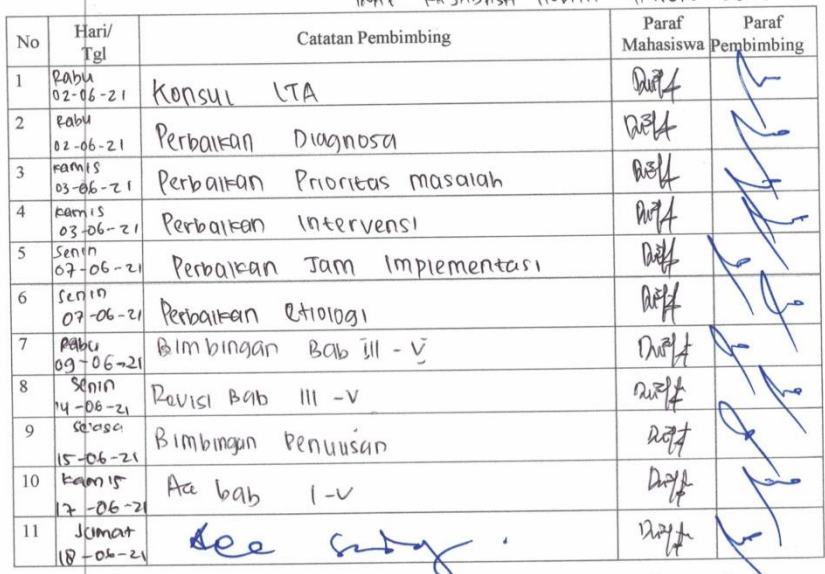 No Hari/ Tgl Catatan Pembimbing Paraf Mahasiswa Paraf Pembimbing
1 Rabu 02-06-21 Konsul LTA
2 Rabu 02-06-21 Perbaikan Diagnosa
3 Kamis 03-06-21 Perbaikan Prioritas masalah
4 Kamis 03-06-21 Perbaikan Intervensi
5 Senin 07-06-21 Perbaikan Jam Implementasi
6 Senin 07-06-21 Perbaikan etiologi
7 Rabu 09-06-21 Bimbingan Bab III - V
8 Senin 14-06-21 Revisi Bab III - V
9 Selasa 15-06-21 Bimbingan Penulisan
10 Kamis 17-06-21 Acc bab I - V
11 Jumat 18-06-21 Acc